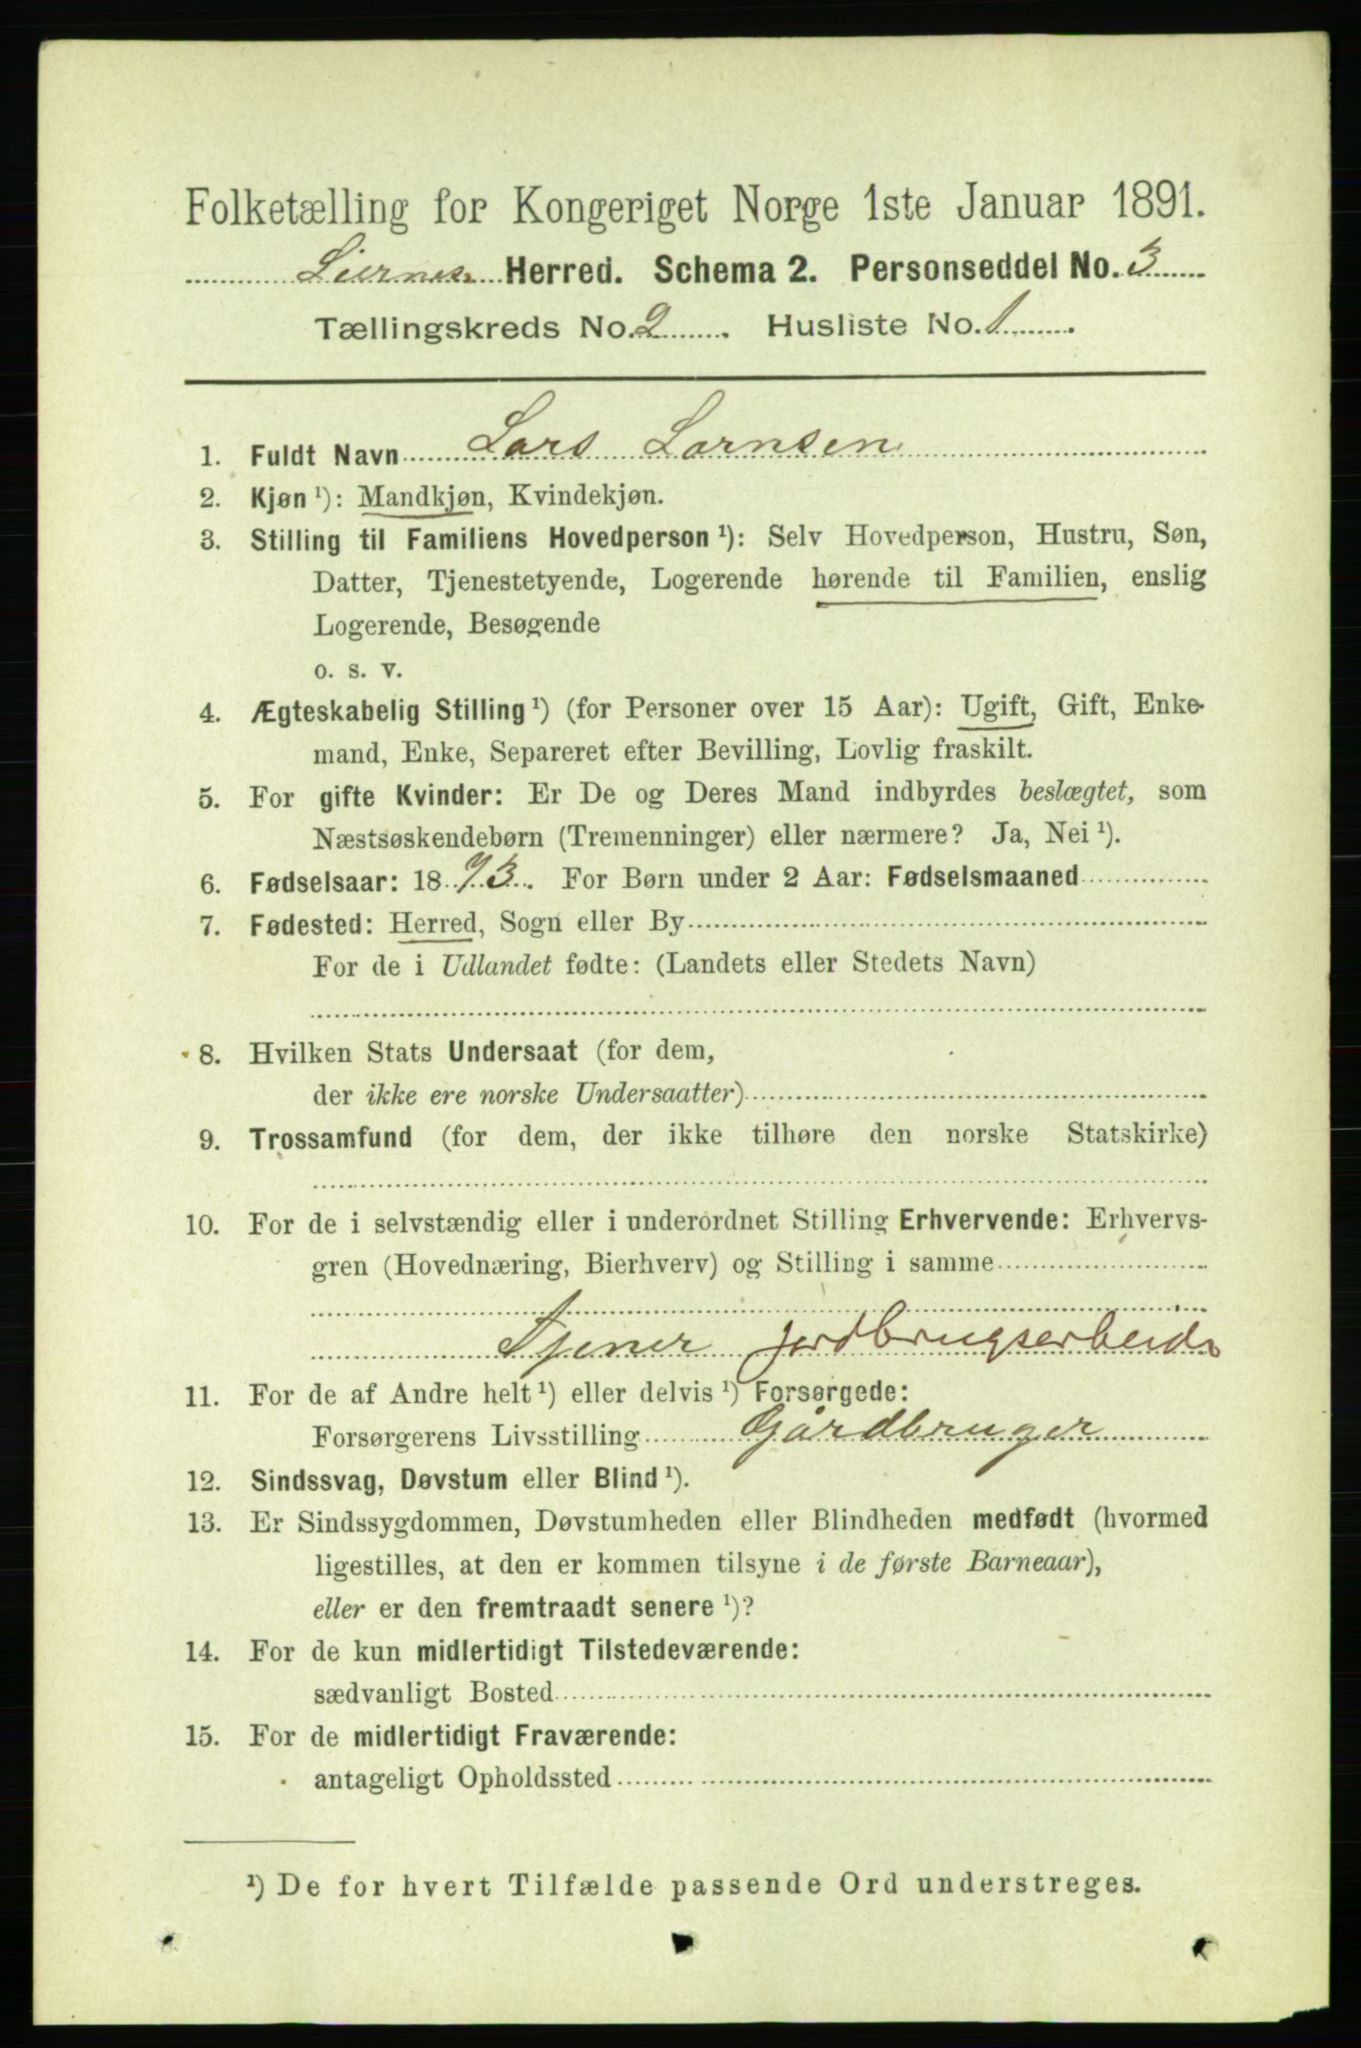 Folketælling for Kongeriget Norge 1ste Januar 1891.
Liernes Herred. Schema 2. Personseddel No. 3
Tællingskreds No. 2. Husliste No. 1.
1. Fuldt Navn Lars Larnsen
2. Kjøn ¹): Mandkjøn, Kvindekjøn.
3. Stilling til Familiens Hovedperson ¹): Selv Hovedperson, Hustru, Søn,
Datter, Tjenestetyende, Logerende hørende til Familien, enslig
Logerende, Besøgende
o. s. v.
4. Ægteskabelig Stilling ¹) (for Personer over 15 Aar): Ugift, Gift, Enke-
mand, Enke, Separeret efter Bevilling, Lovlig fraskilt.
5. For gifte Kvinder: Er De og Deres Mand indbyrdes beslægtet, som
Næstsøskendebørn (Tremenninger) eller nærmere? Ja, Nei ¹).
6. Fødselsaar: 1873. For Børn under 2 Aar: Fødselsmaaned
7. Fødested: Herred, Sogn eller By
For de i Udlandet fødte: (Landets eller Stedets Navn)
8. Hvilken Stats Undersaat (for dem,
der ikke ere norske Undersaatter)
9. Trossamfund (for dem, der ikke tilhøre den norske Statskirke)
10. For de i selvstændig eller i underordnet Stilling Erhvervende: Erhvervs-
gren (Hovednæring, Bierhverv) og Stilling i samme
Tjener jordbrugserbeide
11. For de af Andre helt ¹) eller delvis ¹) Forsørgede:
Forsørgerens Livsstilling Gårdbruger
12. Sindssvag, Døvstum eller Blind ¹).
13. Er Sindssygdommen, Døvstumheden eller Blindheden medfødt (hvormed
ligestilles, at den er kommen tilsyne i de første Barneaar),
eller er den fremtraadt senere ¹)?
14. For de kun midlertidigt Tilstedeværende:
sædvanligt Bosted
15. For de midlertidigt Fraværende:
antageligt Opholdssted
¹) De for hvert Tilfælde passende Ord understreges.